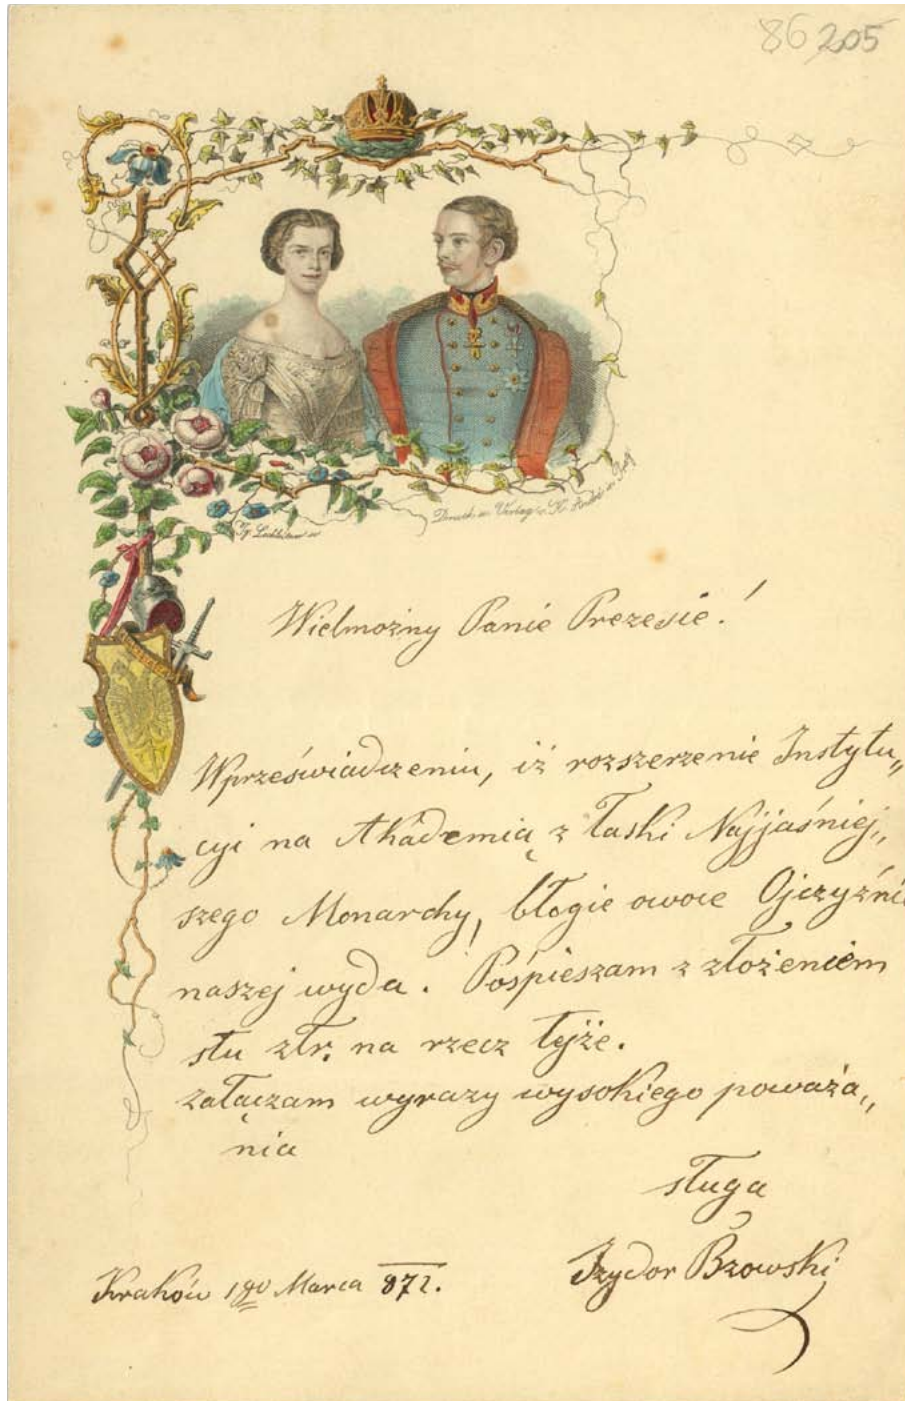 86 205
Druck u. Verlag v.
Wielmożny Panie Prezesie!
Wprzeświadczeniu, iż rozszerzenie Instytu„
cyi na Akademią z łaski Najjaśniej„
szego Monarchy, błogie owoce Ojczyźnie
naszej wyda. Pośpieszam z złożeniem
stu złr. na rzecz tejże.
załączam wyrazy wysokiego poważa„
nia
sługa
Izydor Bzowski
Kraków 1go Marca 872.